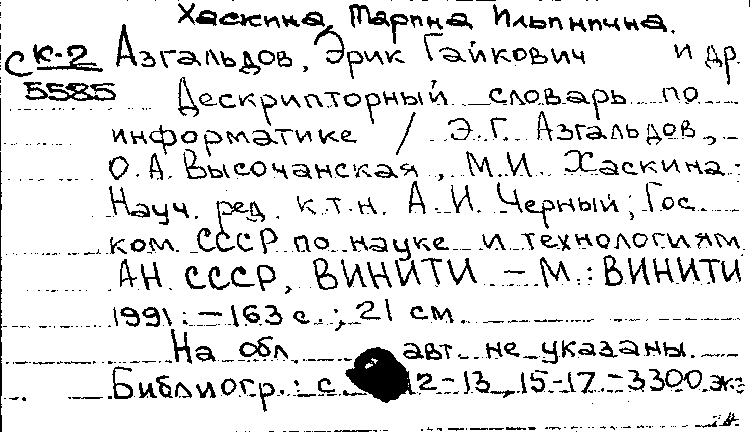 Хаскина, Марина Ильинична.
СК-2 Азгальдов, Эрик Гайкович и др.
5585 Дескрипторный словарь по
информатике / Э.Г. Азгальдов,
О.А. Высочанская, М.И. Хаскина;
Науч. ред. к.т.н. А.И. Черный; Гос.
ком. СССР по науке и технологиям
АН СССР, ВИНИТИ – М.: ВИНИТИ
1991. – 163 с.; 21 см.
На обл. авт. не указаны.
Библиогр.: с. 12-13, 15-17. – 3300 экз